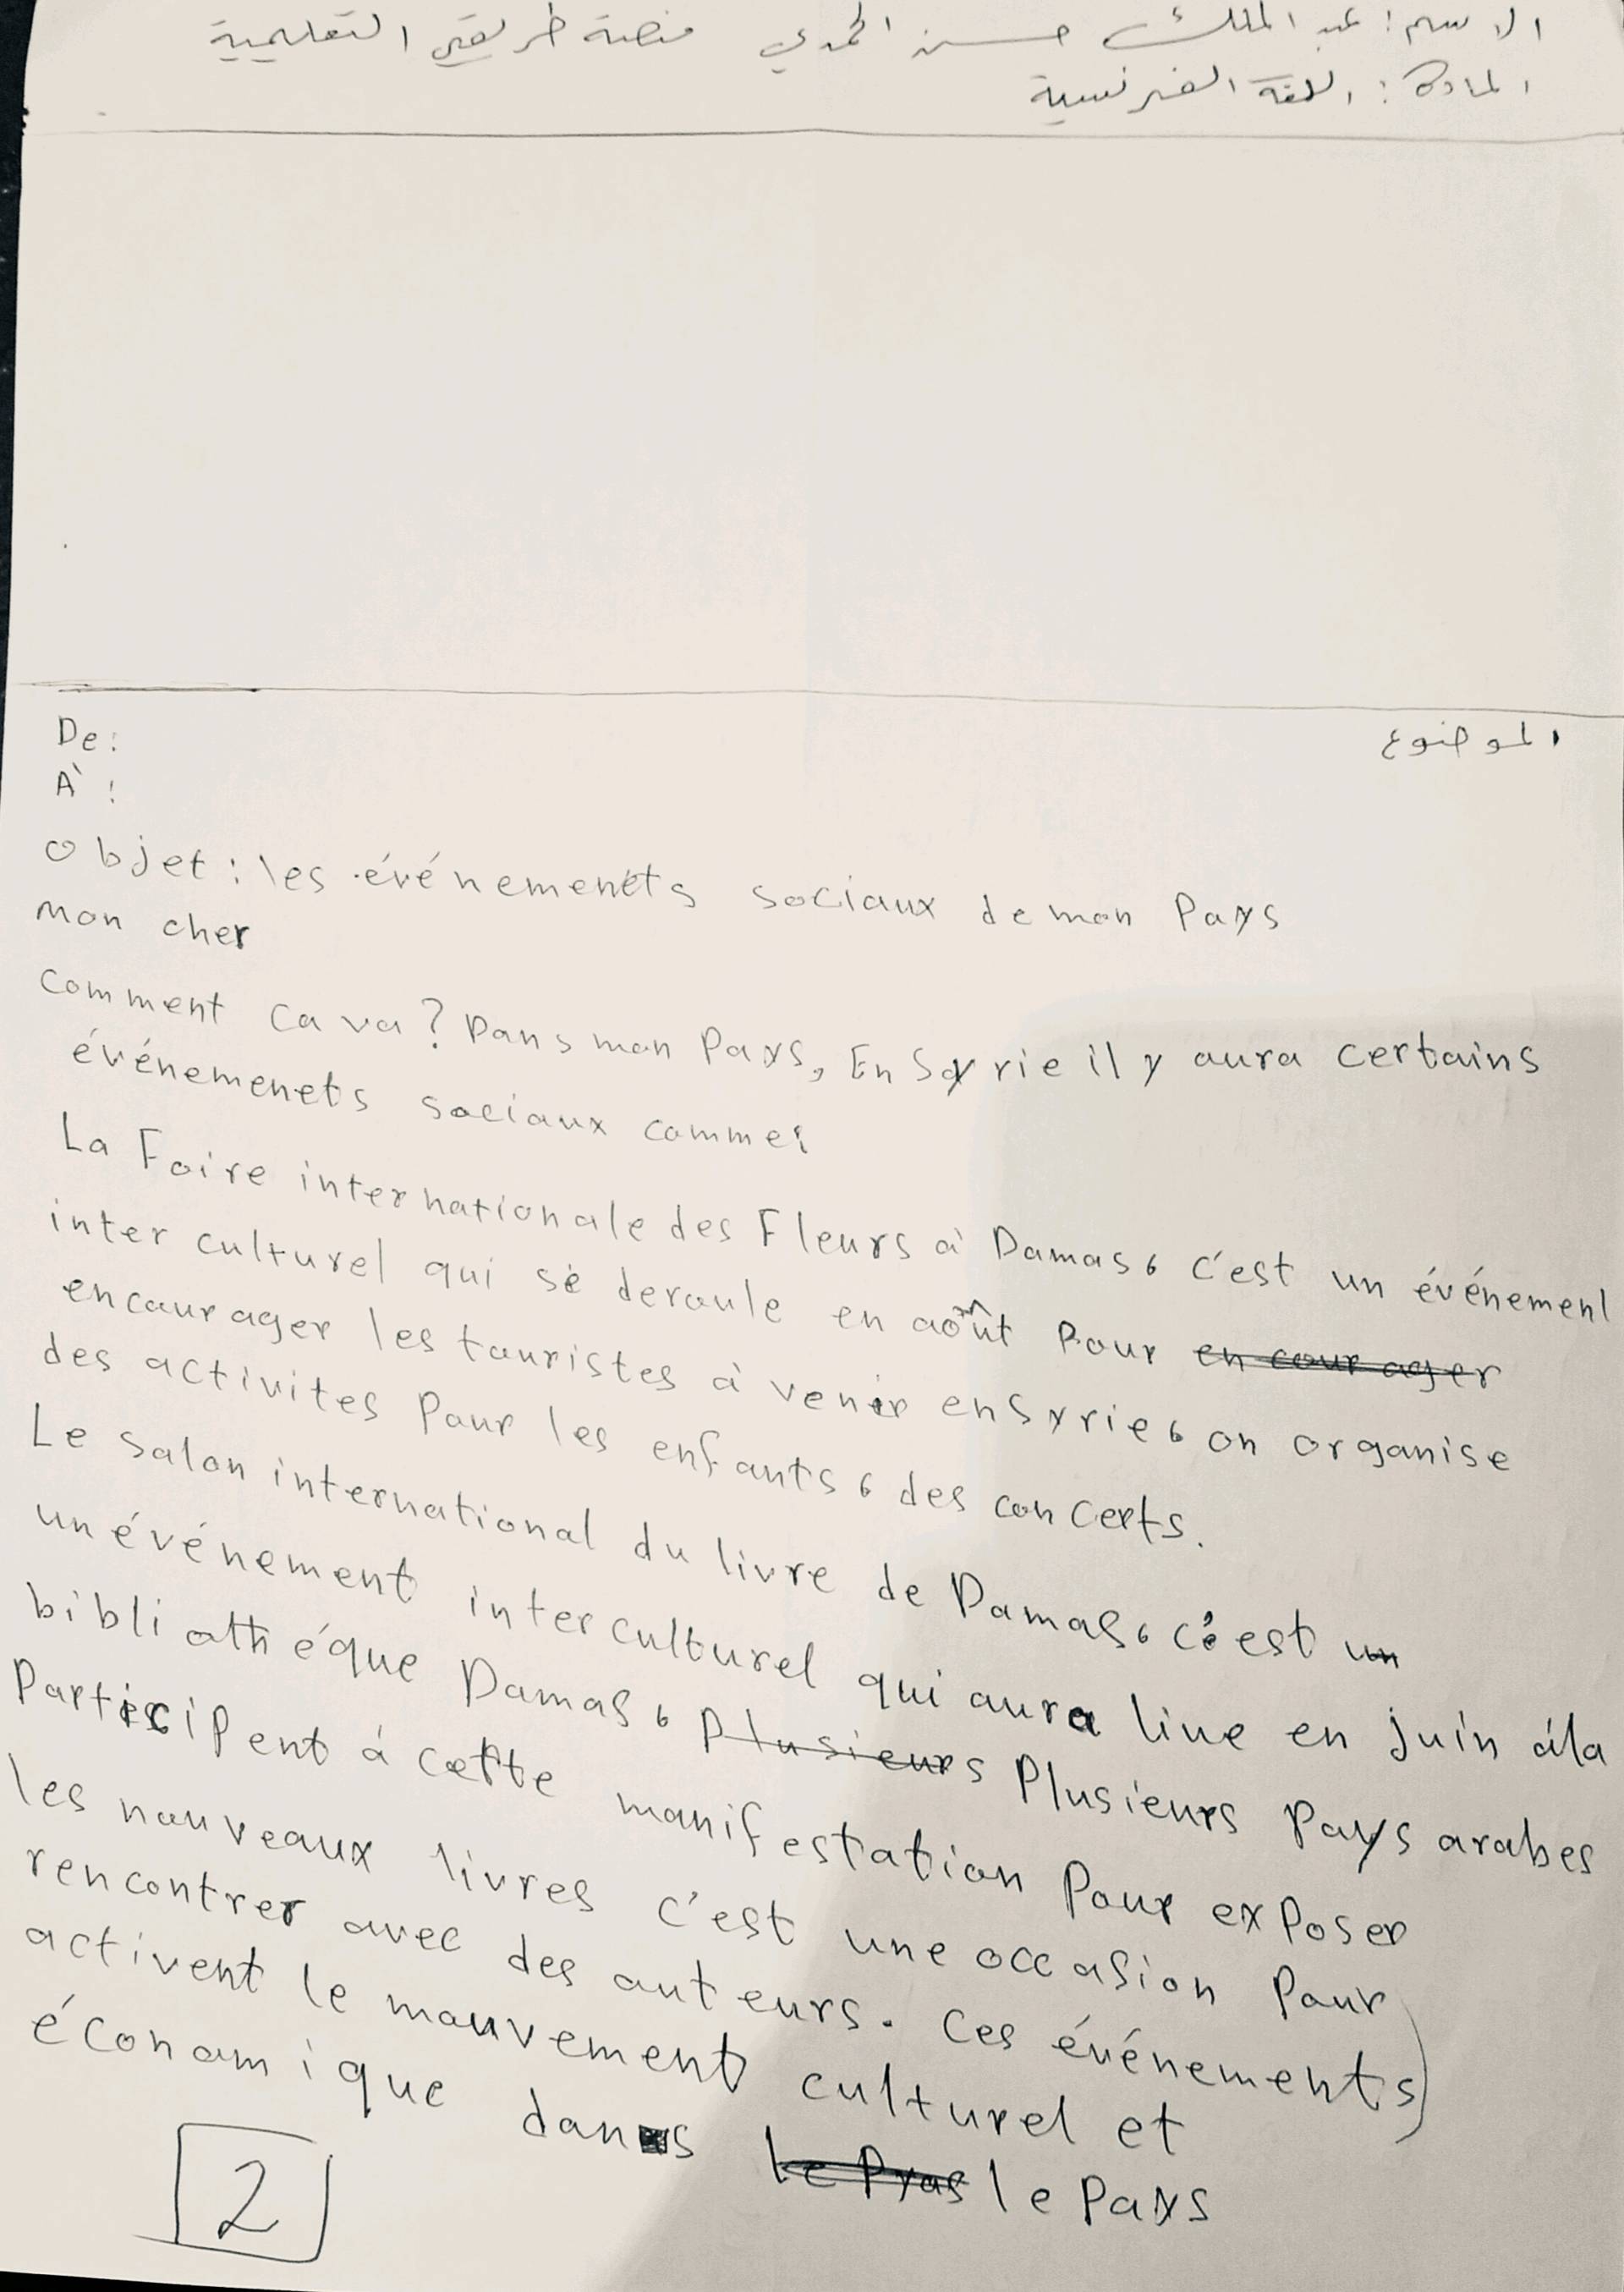 الاسم: عبد الملك حسن الحمدي منصة طريقي التعليمية
المادة: اللغة الفرنسية
الموضوع
De:
À:
Objet: les événemenets sociaux de mon Pays
mon cher
Comment ca va? Dans mon Pays, En Syrie il y aura certains
événemenets sociaux comme:
La Foire internationale des Fleurs à Damas, c'est un événement
inter culturel qui se deroule en août Pour en courager
encourager les touristes à venir en Syrie, on organise
des activites Pour les enfants, des concerts.
Le salon international du livre de Damas, c'est un
un événement inter culturel qui aura liue en juin á la
bibliothéque Damas, Plusieurs Plusieurs Pays arabes
Participent á cette manifestation Pour exPoser
les nouveaux livres c'est une occasion Pour
rencontrer avec des auteurs. Ces événements
activent le mouvement culturel et
économique dans le Pyas le Pays
2